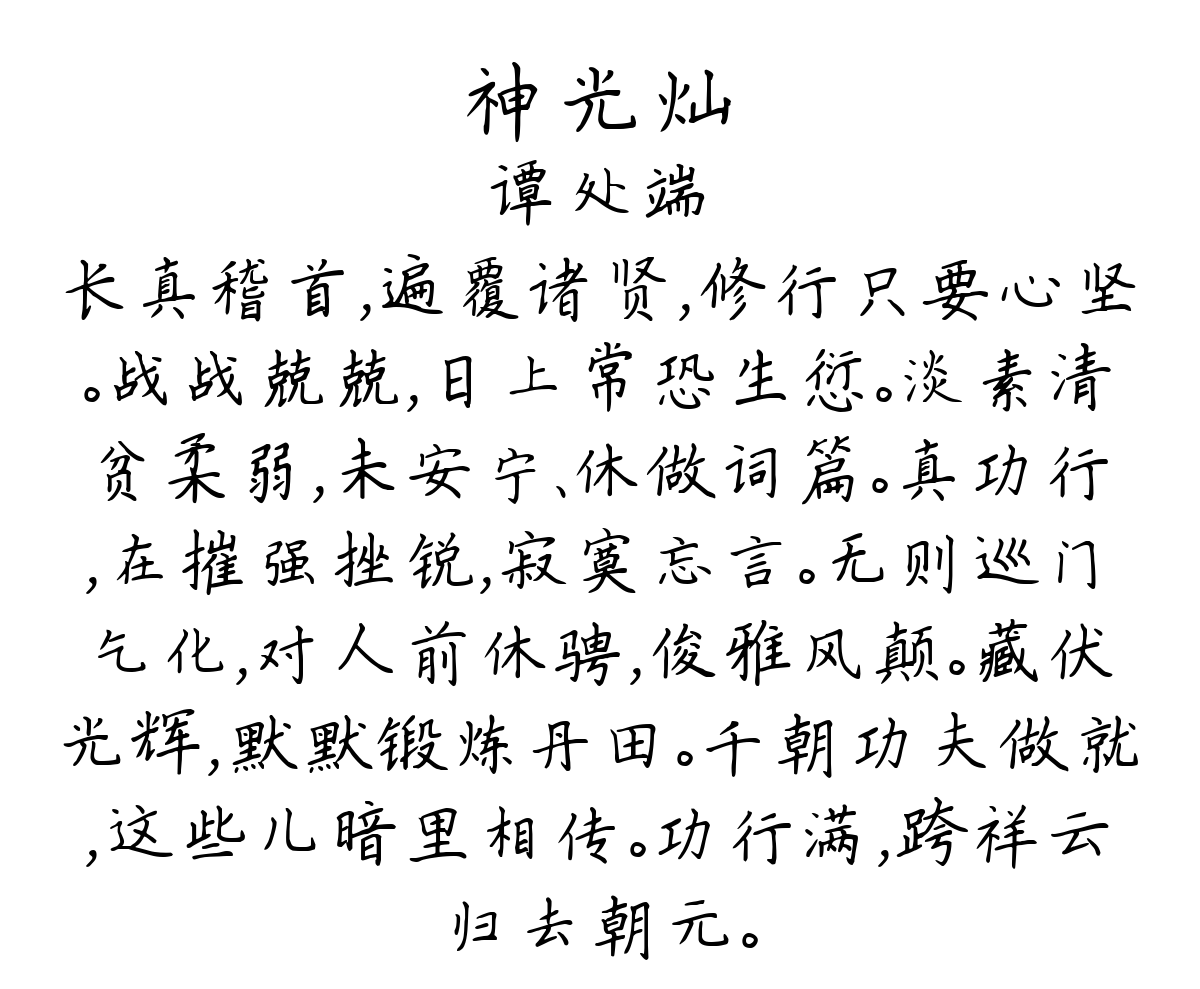 神光灿
谭处端
长真稽首,遍覆诸贤,修行只要心坚
。战战兢兢,日上常恐生愆。淡素清
贫柔弱,未安宁、休做词篇。真功行
,在摧强挫锐,寂寞忘言。无则巡门
乞化,对人前休骋,俊雅风颠。藏伏
光辉,默默锻炼丹田。千朝功夫做就
,这些儿暗里相传。功行满,跨祥云
归去朝元。